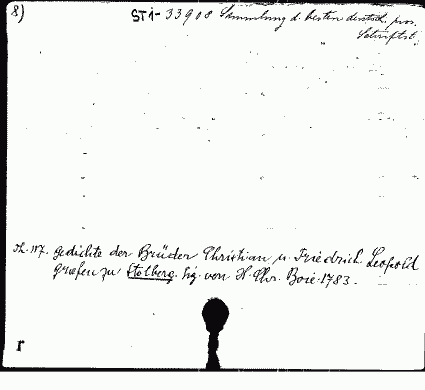 8)
STi-33908 Sammlung d. besten deutsch. pros.
Schriftst.
Th. 117. Gedichte der Brüder Christian u. Friedrich Leopold
Grafen zu Stolberg. Hg. von H. Chr. Boie. 1783.
r